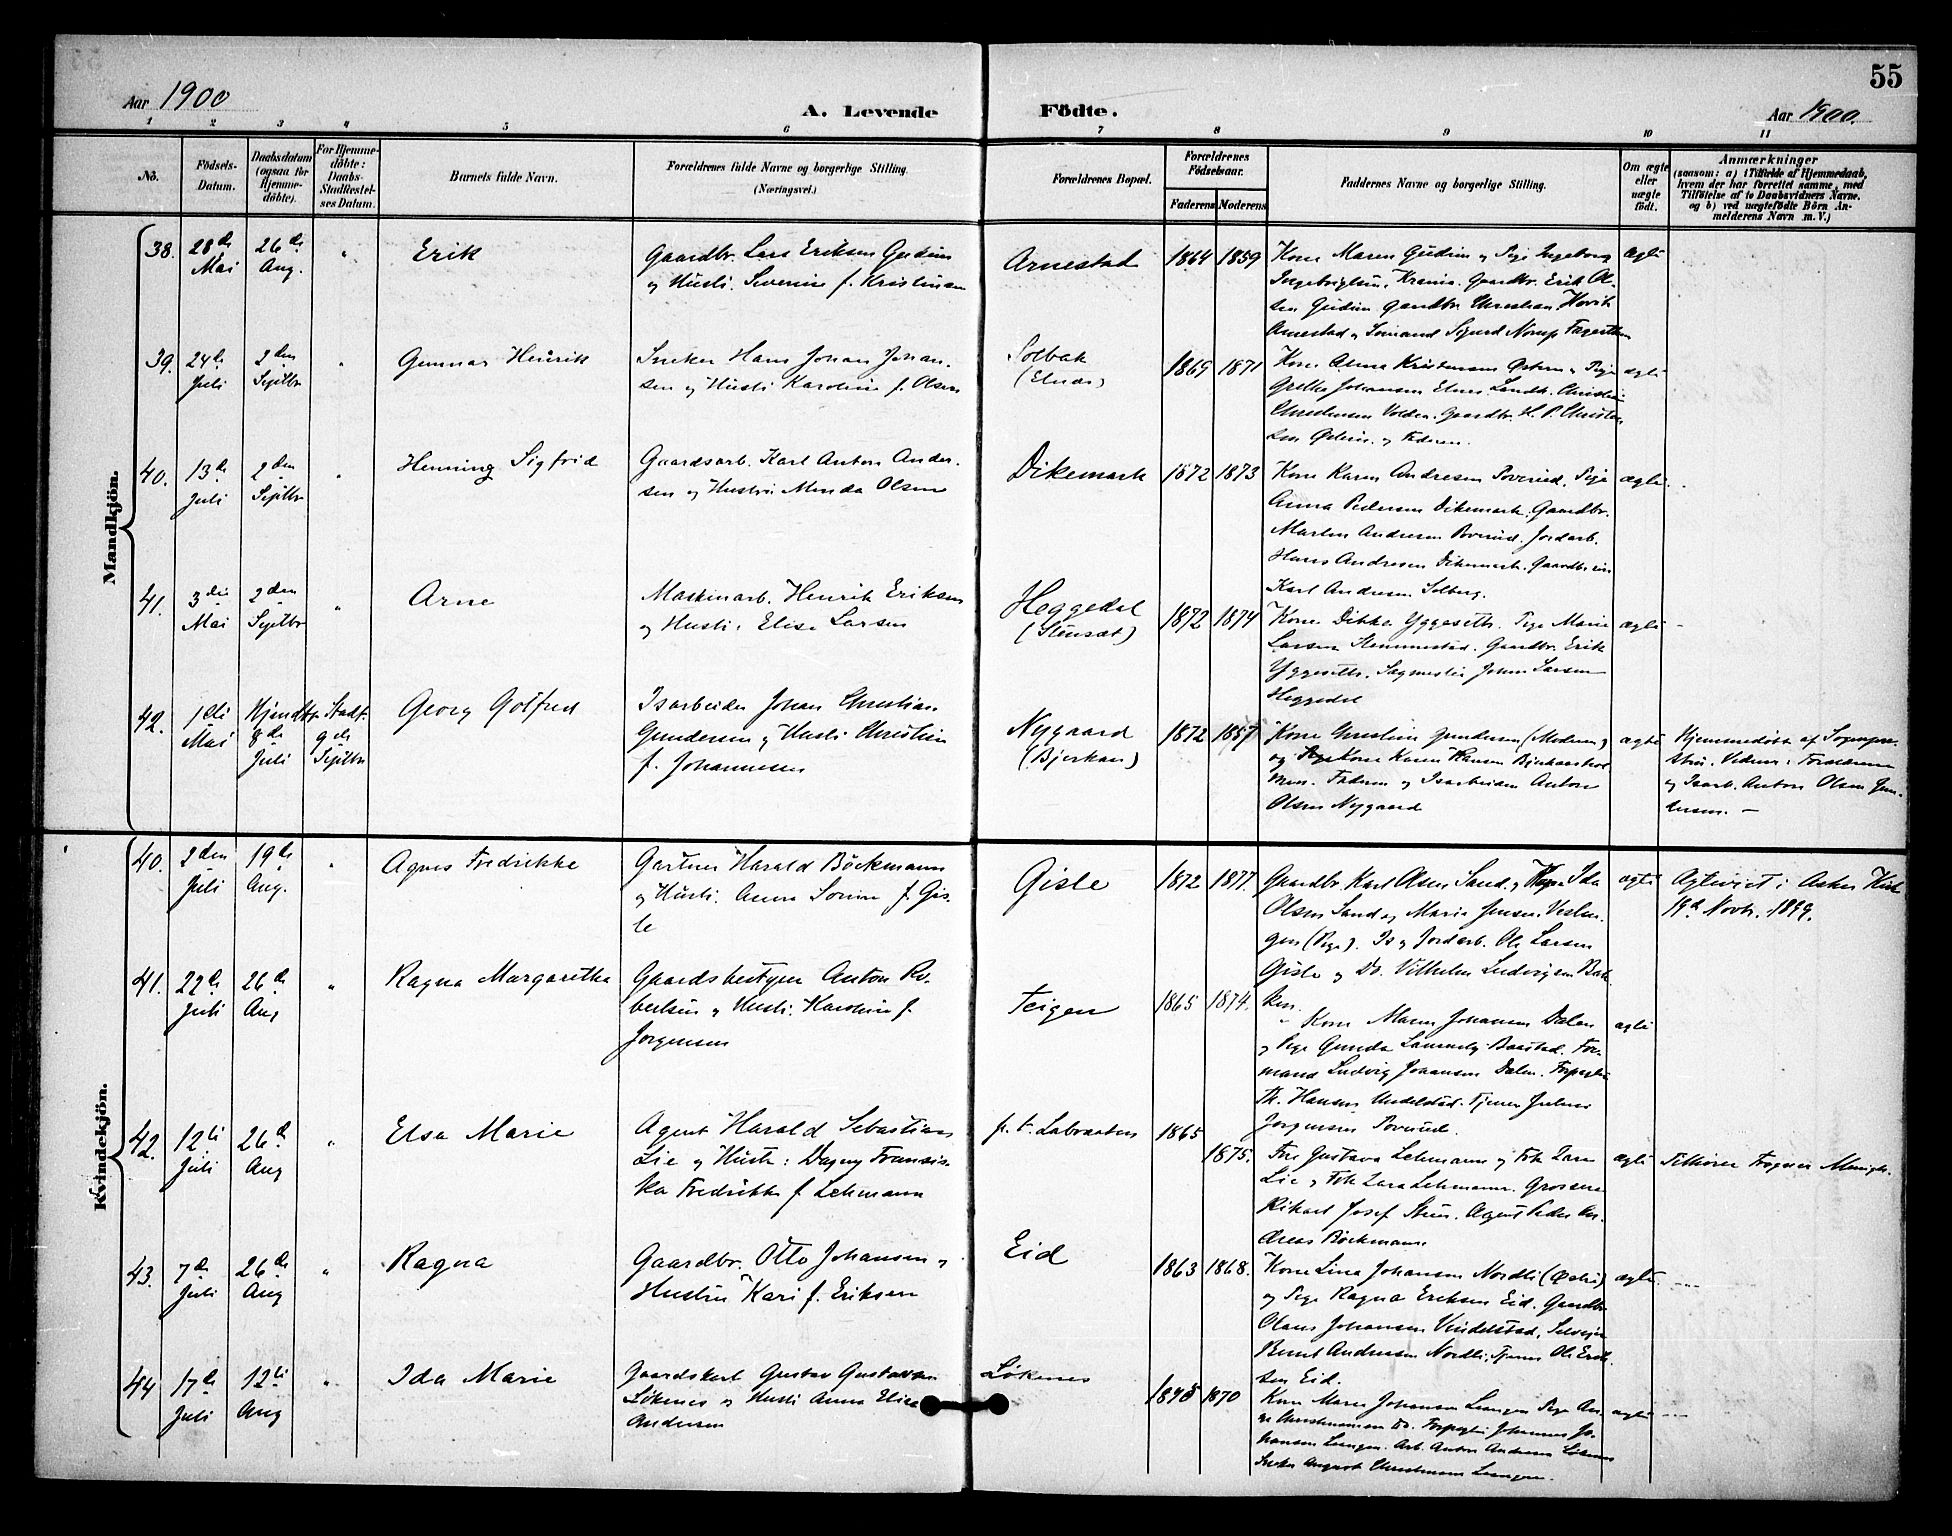 55
Aar 1900
A. Levende Födte.
Aar 1900.
1 2 3 4 5 6 7 8 9 10 11
No.
Födsels-Datum.
Daabsdatum (ogsaa for Hjemme-döbte).
For Hjemme-döbte: Daabs-Stadfæstel-ses Datum.
Barnets fulde Navn.
Forældrenes fulde Navne og borgerlige Stilling.
(Næringsvei.)
Forældrenes Bopæl.
Forældrenes Födselsaar.
Faderens Moderens
Faddernes Navne og borgerlige Stilling.
Om ægte eller uægte födt.
Anmærkninger
(saasom: a) i Tilfælde af Hjemmedaab,
hvem der har forrettet samme, med
Tilföielse af to Daabsvidners Navne,
og b) ved uægtefödte Börn An-
melderens Navn m. V.)
Mandkjön.
38. 28de Mai 26de Ang. " Erik
Gaardbr. Lars Eriksen Gudim
og Hustr. Severine f. Kristiansen
Arnestad 1864 1859
Kone Maren Gudim og Pige Ingeborg
Gaardbr. Erik Ol-
sen Gudim Gaardbr. Christian Hovik
Arnestad
ægte
39. 24de Juli 2den Septbr " Gunnar Henrik
Snekker Hans Johan Johan-
sen og Hustr. Karoline f. Olsen
Solbak
(Elnæs)
1869 1871
Kone Anna Kristensen Østern og Pige
Grethe Johansen Elnæs. Landh. Christian
Christensen Volden. Gaardbr. H. P. Christen-
sen Østern og Faderen.
ægte
40. 13de Juli 2den Septbr " Henning Sigfrid
Gaardsarb. Karl Anton Ander-
sen og Hustru Minda Olsen
Dikemark 1872 1873
Kone Karen Andresen Poverud. Pige
Anna Pedersen Dikemark. Gaardbr.
Martin Andresen Poverud. Jordarb.
Hans Andresen Dikemark. Gaardbr.
Karl Andresen Solberg.
ægte
41. 3die Mai 2den Septbr " Arne
Maskinarb. Henrik Eriksen
og Hustr. Elise Larsen
Heggedal
(Stensæt)
1872 1874
Kone Dikka Yggeseth. Pige Marie
Larsen Slemmestad. Gaardbr. Erik
Yggeseth. Sagmester Johan Larsen
Heggedal
ægte
42. 1ste Mai Hjemdbt 8de Juli Stadf. 9de Septbr Georg Gotfred
Isarbeider Johan Christian
Gundersen og Hustr. Christine
f. Johannesen
Nygaard
(Bjerkaas)
1872 1857
Kone Christine Gundersen (Moderen)
og Kone Karen Hansen Bjerkaashol-
men. Faderen og Isarbeider Anton
Olsen Nygaard
ægte
Hjemmedöbt af Sognepræ-
sten. Vidner: Forældrene
og Isarb. Anton Olsen Gun-
dersen. —
Kvindekjön.
40. 2den Juli 19de Aug. " Agnes Fredrikke
Gartner Harald Böckmann
og Hustr. Anna Sorine f. Gis-
le
Gisle 1872 1877.
Gaardbr. Karl Olsen Sand og Ida
Olsen Sand og Marie Jensen Veslun-
gen (Pige). Is og Jordarb. Ole Larsen
Gisle og Do. Vilhelm Ludvigsen Bak-
ken.
ægte
Ægteviet i Asker Kirke
19de Novbr. 1899.
41. 22de Juli 26de Aug " Ragna Margaretha
Gaardsbestyrer Anton Ro-
bertsen og Hustr. Karoline f.
Jorgensen
Teigen 1865 1874.
Kone Maren Johansen Dalen
og Pige Gunda Baastad. For-
mand Ludvig Johansen Dalen. Forpagter
Th. Hansen Undelstad. Tjener Julius
Jorgensen Poverud.
ægte
42. 12te Juli 26de Aug " Elsa Marie
Agent Harald Sebastian
Lie og Hustr: Dagny Fransis-
ka Fredrikke f. Lehmann
p. t. Labraaten 1865 1875.
Fru Gustava Lehmann og Frk Zara
Lie og Frk Zara Lehmann. Grosserer
Rikard Josef Steen. Agent Peder An-
dreas Böckmann.
ægte
Tilhører Frogner Menigh.
43. 7de Juli 26de Aug " Ragna
Gaardbr. Otto Johansen og
Hustru Kari f. Eriksen
Eid 1863 1868.
Kone Lina Johansen Nordli (Østre)
og Pige Ragna Eriksen Eid. Gaardbr
Olaus Johansen Vendelstad, Selveier
Bernt Andresen Nordli, Tjener Ole Erik-
sen Eid.
ægte
44 17de Juli 12te Aug " Ida Marie
Gaardskarl Gustav Gustavsen
Løkenes og Hustr. Anna Elise
Andersen
Løkenes 1875 1870
Kone Maren Johansen Leangen Pige An-
Christensen Do. Forpagter Johannes Jo-
hansen Leangen. Arb. Anton Andersen Løkenes
Snekker August Christensen Leangen.
ægte